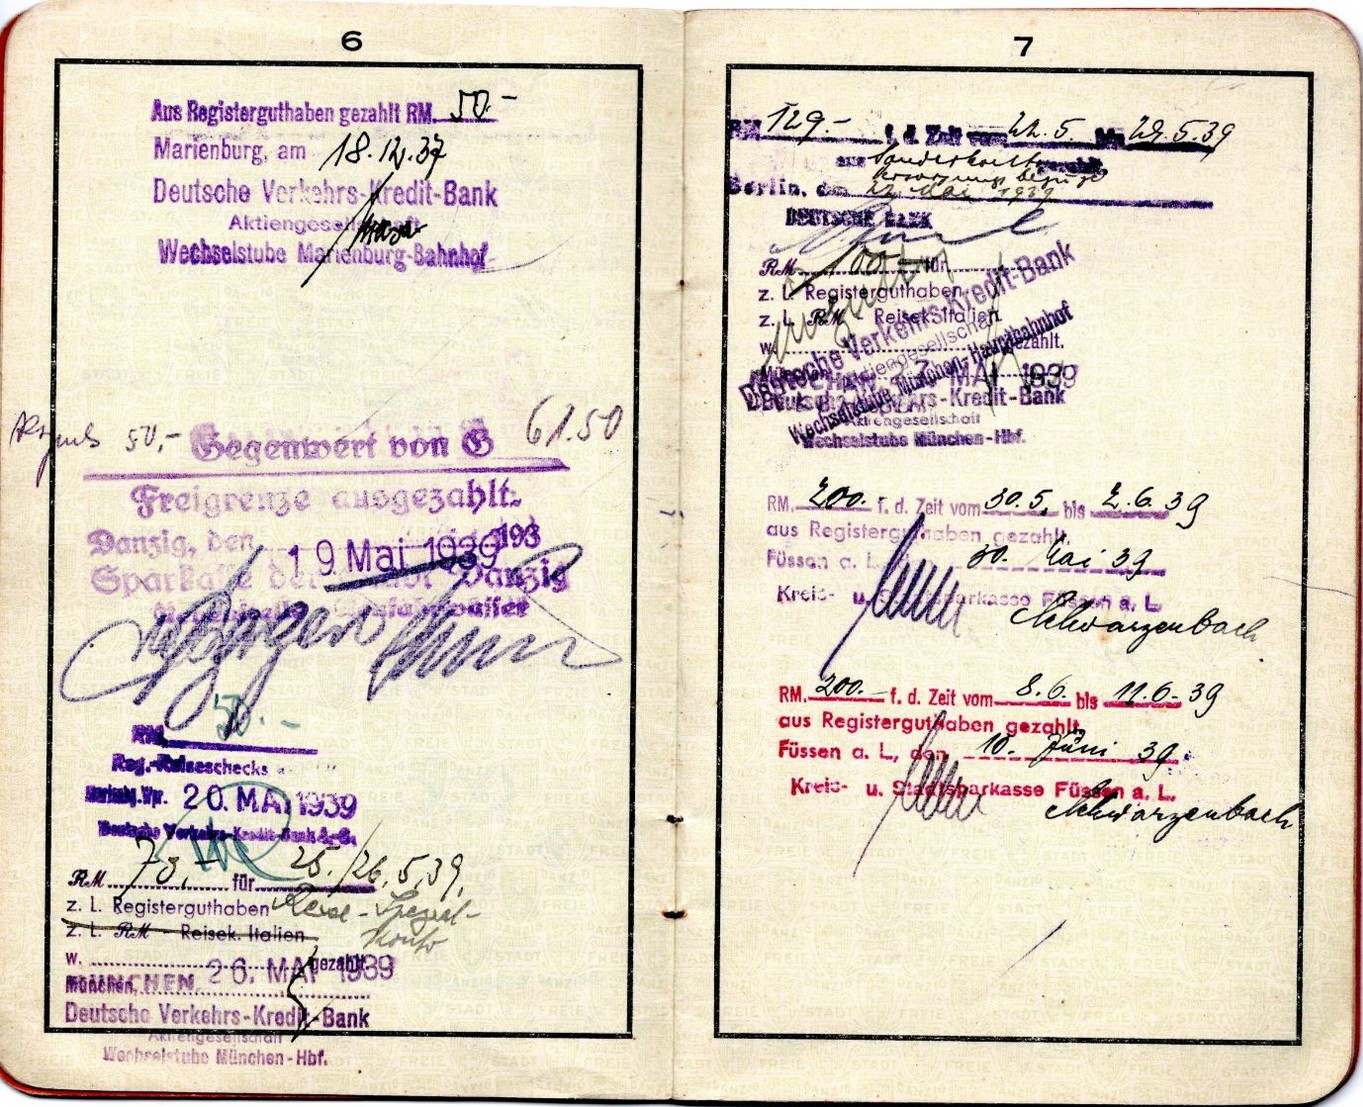 6
Aus Registerguthaben gezahlt RM. 50.-
Marienburg, am 18.12.37
Deutsche Verkehrs-Kredit-Bank
Aktiengesellschaft
Wechselstube Marienburg-Bahnhof
50,- Gegenwert von G 61.50
Freigrenze ausgezahlt.
Danzig, den 193
19 Mai 1939
Sparkasse der Stadt Danzig
50.-
RM
Reg.-Reiseschecks
20. MAI 1939
Deutsche Verkehrs-Kredit-Bank A.-G.
RM 73,- für 25./26.5.39.
z. L. Registerguthaben Reise-Spezial-
konto
z. L. RM - Reisek. Italien
w. gezahlt
München, MÜNCHEN, 26. MAI 1939
Deutsche Verkehrs-Kredit-Bank
Aktiengesellschaft
Wechselstube München-Hbf.
7
RM 129.- f. d. Zeit vom 22.5. bis 29.5.39
aus gezahlt
Berlin, den 22. Mai 1939
DEUTSCHE BANK
RM 100.- für
z. L. Registerguthaben
z. L. RM Reisek. Italien
w. gezahlt.
MÜNCHEN, 27. MAI 1939
Deutsche Verkehrs-Kredit-Bank
Aktiengesellschaft
Wechselstube München-Hbf.
Deutsche Verkehrs-Kredit-Bank
Aktiengesellschaft
Wechselstube München-Hauptbahnhof
RM. 200.- f. d. Zeit vom 30.5. bis 2.6.39
aus Registerguthaben gezahlt.
Füssen a. L., 30. Mai 39
Kreis- u. Stadtsparkasse Füssen a. L.
Schwarzenbach
RM. 200.- f. d. Zeit vom 8.6. bis 11.6.39
aus Registerguthaben gezahlt.
Füssen a. L., den 10. Juni 39.
Kreis- u. Stadtsparkasse Füssen a. L.
Schwarzenbach